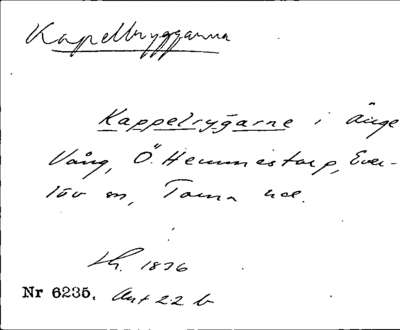 Kapellryggarna
Kappelrygarne i Änge
Vång, Ö. Hemmestorp, Ever-
löv sn, Torna hd.
Lh. 1876
Nr 6235. Ant 22 b